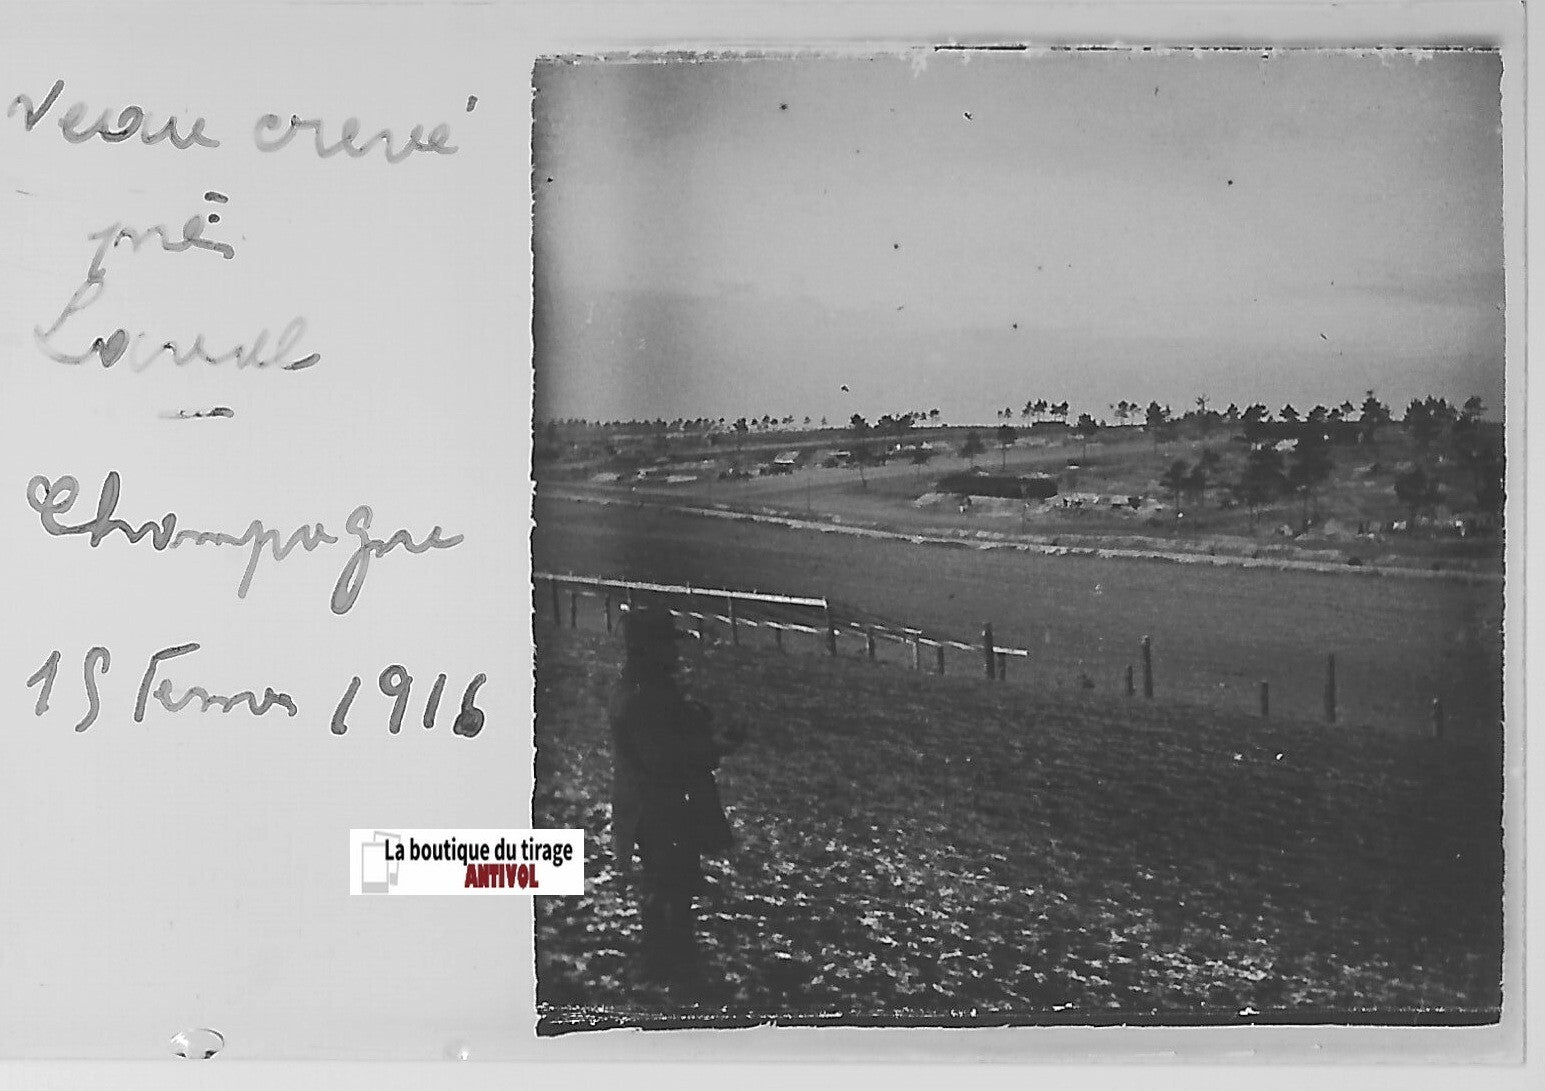 Veau crevé
près
Laval
Champagne
15 Fevrier 1916
La boutique du tirage
ANTIVOL